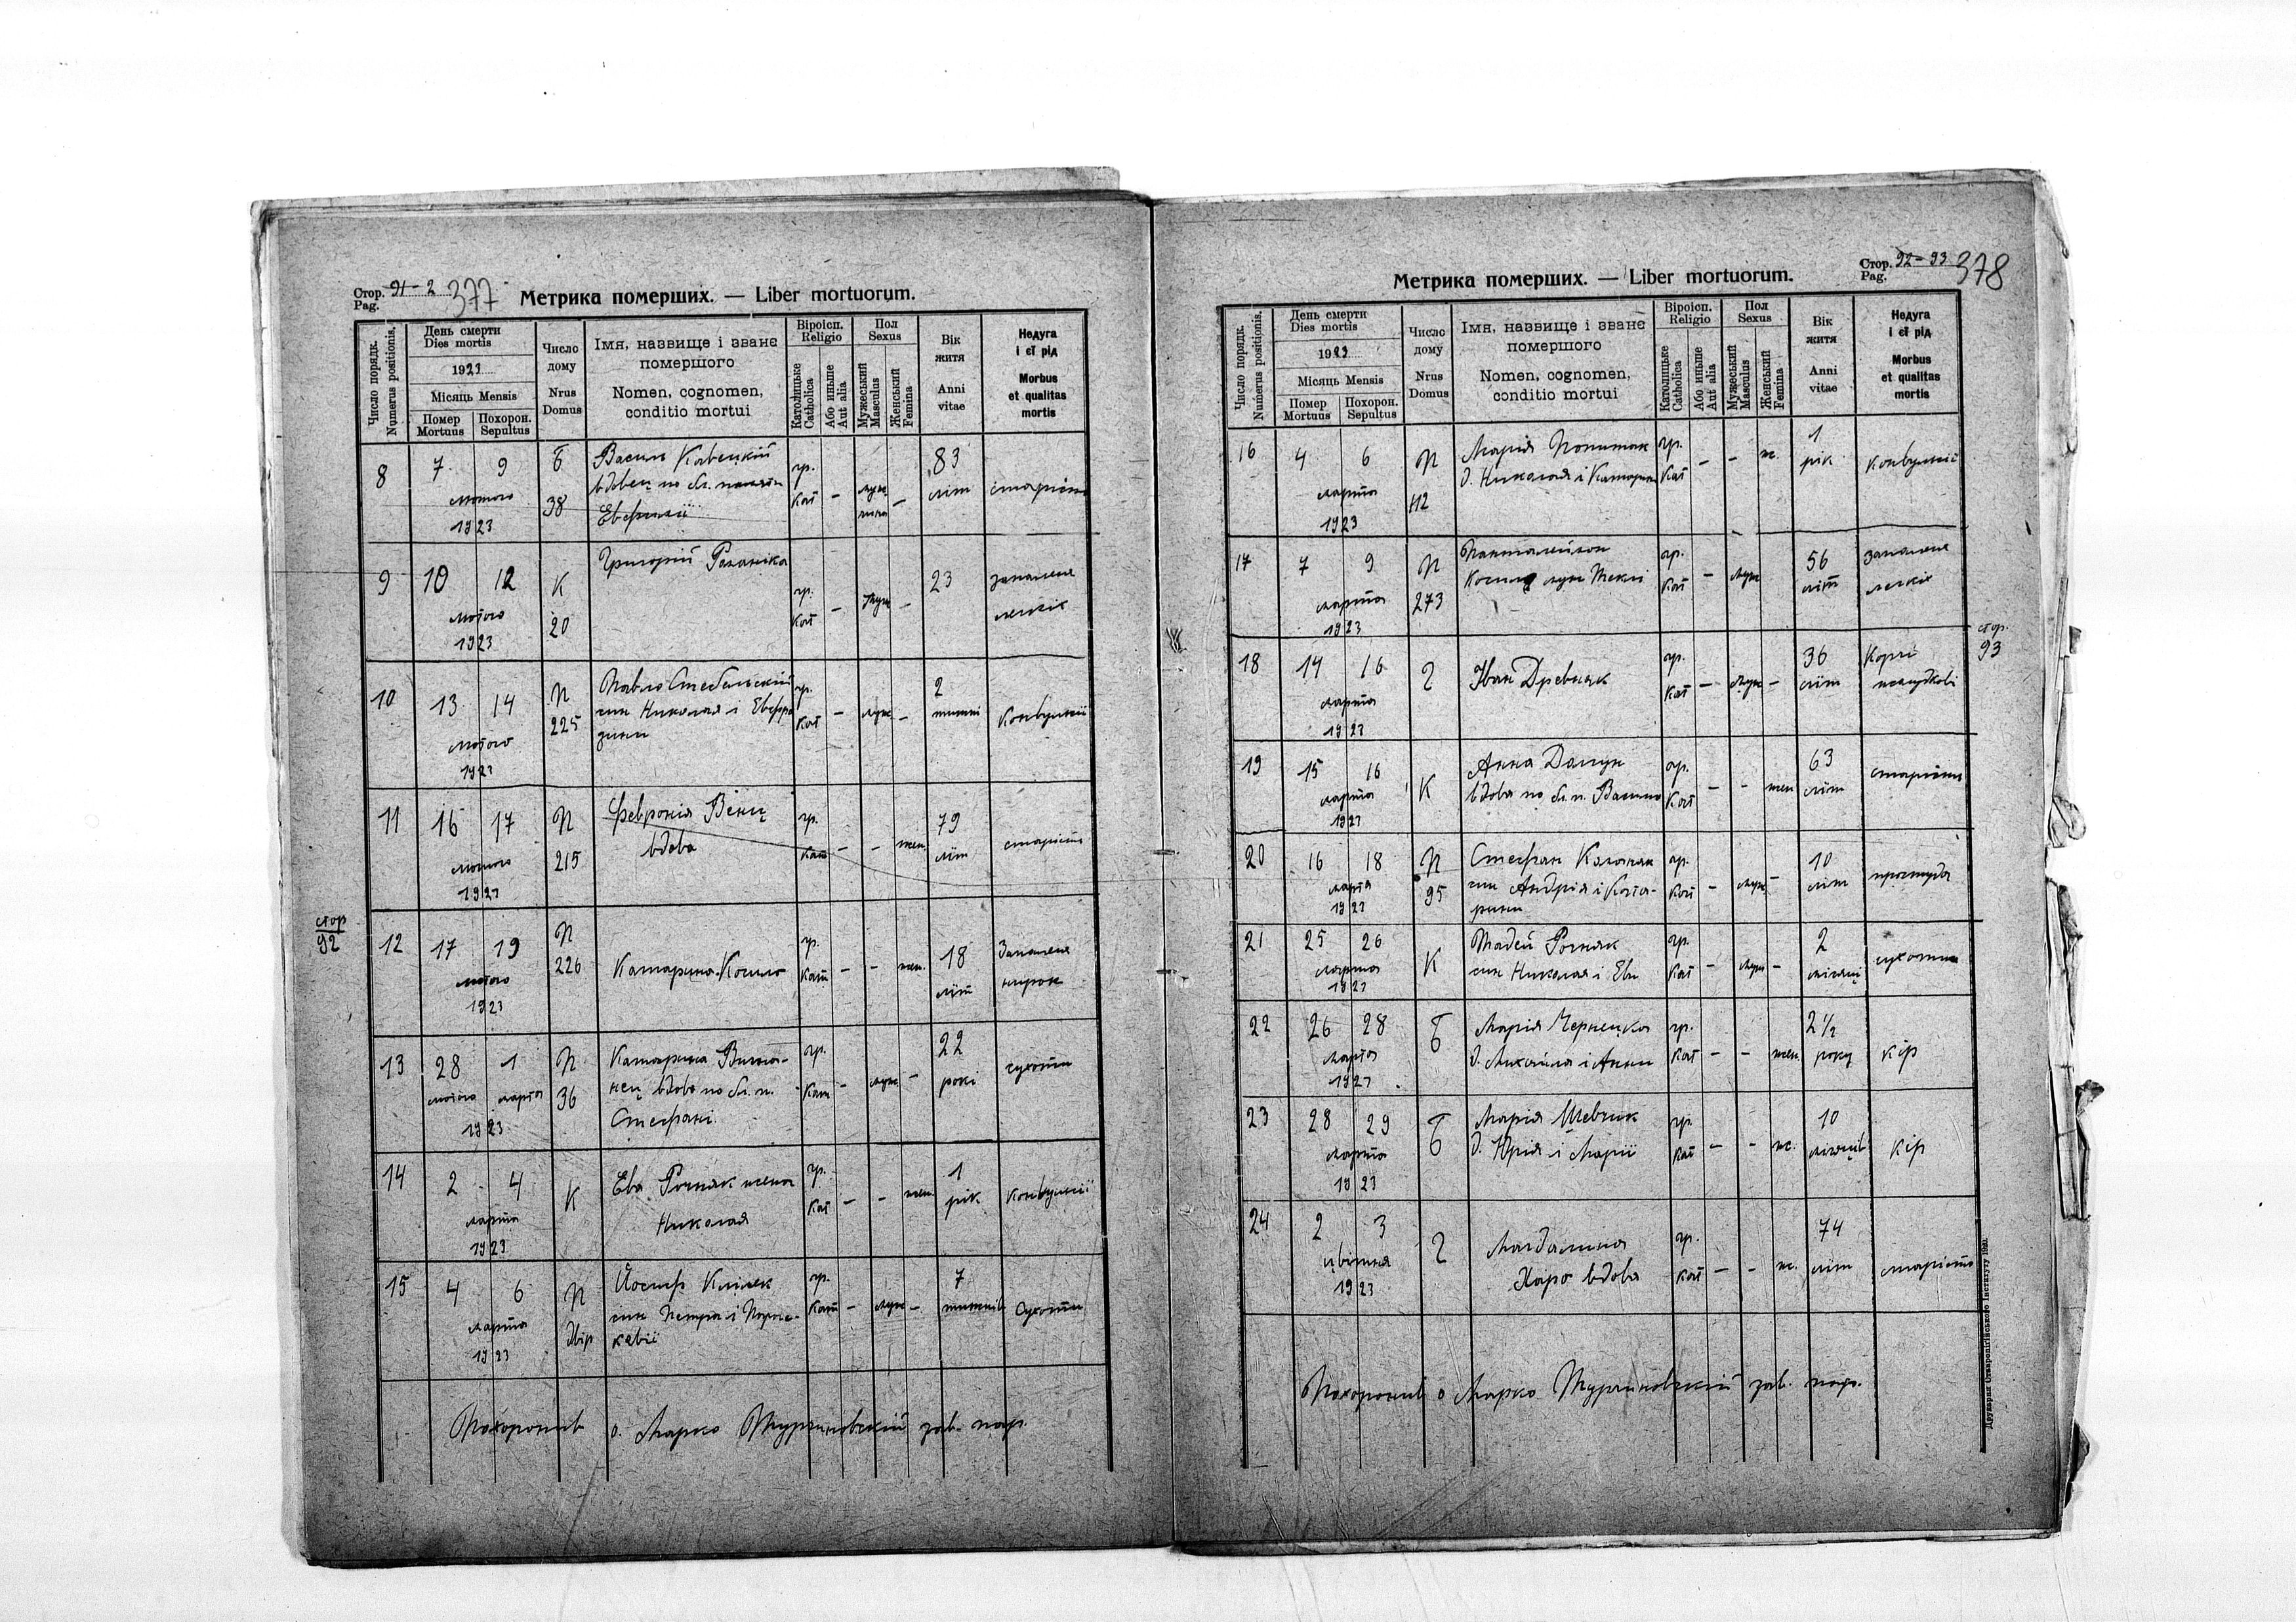 Стор. 91-2 377
Pag.
Метрика померших. — Liber mortuorum.
Число порядк.
Numerus positionis.
День смерти
Dies mortis
1923
Місяць Mensis
Помер Похорон.
Mortuus Sepultus
Число
дому
Nrus
Domus
Імя, назвище і званє
помершого
Nomen, cognomen,
conditio mortui
Віроісп.
Religio
Католицьке
Catholica
Або иньше
Aut alia
Пол
Sexus
Мужеський
Masculus
Женський
Femina
Вік
життя
Anni
vitae
Недуга
і єї рід
Morbus
et qualitas
mortis
8 7 9 Б Василь 83
вдовец по бл. гр.
лютого 38 кат — — літ старість
1923
9 10 12 К Григорій 23 запаленє
лютого 20 гр. кат — муж — легких
1923
10 13 14 П Павло Стебельский гр. 2
225 син Николая і кат — муж — конвульсії
лютого
1923
11 16 17 П Февронія гр. 79
лютого 215 вдова кат — — жен. літ старість
1923
стор
92
12 17 19 П гр. 18 Запаленє
226 Катарина Косило кат — — жен. літ нирок
лютого
1923
13 28 1 П Катарина гр. 22 сухоти
лютого марта 36 вдова по бл. п. кат — муж — рокі
1923 Стефані.
14 2 4 К Ева Рогняк жена гр. 1
марта Николая кат — — жен. рік конвульсії
1923
15 4 6 П Йосиф гр. 7
марта двір син Петра і Параскевії кат — муж — тижнів Сухоти
1923
Похоронив о. Марко зав. пар.
Стор. 92-93 378
Pag.
Метрика померших. — Liber mortuorum.
Число порядк.
Numerus positionis.
День смерти
Dies mortis
1923
Місяць Mensis
Помер Похорон.
Mortuus Sepultus
Число
дому
Nrus
Domus
Імя, назвище і званє
помершого
Nomen, cognomen,
conditio mortui
Віроісп.
Religio
Католицьке
Catholica
Або иньше
Aut alia
Пол
Sexus
Мужеський
Masculus
Женський
Femina
Вік
життя
Anni
vitae
Недуга
і єї рід
Morbus
et qualitas
mortis
16 4 6 П Марія гр. 1
марта 112 д. Николая і Катарини кат — — ж. рік конвульсії
1923
17 7 9 П Пантелеймон гр. 56 запаленє
марта 273 Косило муж Теклі кат — муж літ легких
1923
стор.
93
18 14 16 2 Іван Древняк гр. 36 Корчі
марта кат — муж — літ жолудкові
1923
19 15 16 К Анна гр. 63 старість
марта вдова по бл. п. Василю кат — — жен літ
1923
20 16 18 П Стефан гр. 10 простуда
марта 95 син Андрія і Катарини кат — муж — літ
1923
21 25 26 К Тадей Рогняк гр. 2 сухоти
марта син Николая і Еви кат — муж — місяці
1923
22 26 28 Б Марія Чернецка гр. 2 ½
марта д. Михайла і Анни кат — — жен. року кір
1923
23 28 29 Б Марія Шевчик гр. 10
марта д. Юрія і Марії кат — — ж. місяців кір
1923
24 2 3 2 Магдалина гр. 74
цвітня Харо вдова кат — — ж. літ старість
1923
Похоронив о Марко зав. пар.
Друкарня Ставропігійського Інституту 1920.